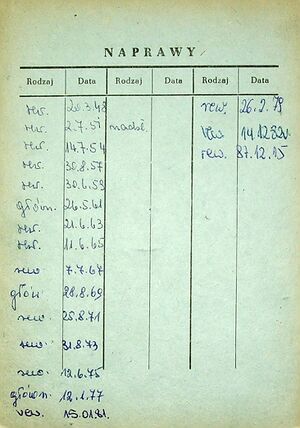 NAPRAWY
Rodzaj Data Rodzaj Data Rodzaj Data
rew. 20.3.48 rew. 26.2.79
rew. 2.7.51 nadzl. rew 14.12.82r.
rew. 14.7.54 rew. 87.12.15
rew. 30.8.57
rew. 30.6.59
główn. 26.5.61
rew. 21.6.63
rew. 11.6.65
rew 7.7.67
głów 28.8.69
rew. 25.8.71
rew. 31.8.73
rew. 12.6.75
główn. 12.1.77
rew. 15.01.81.